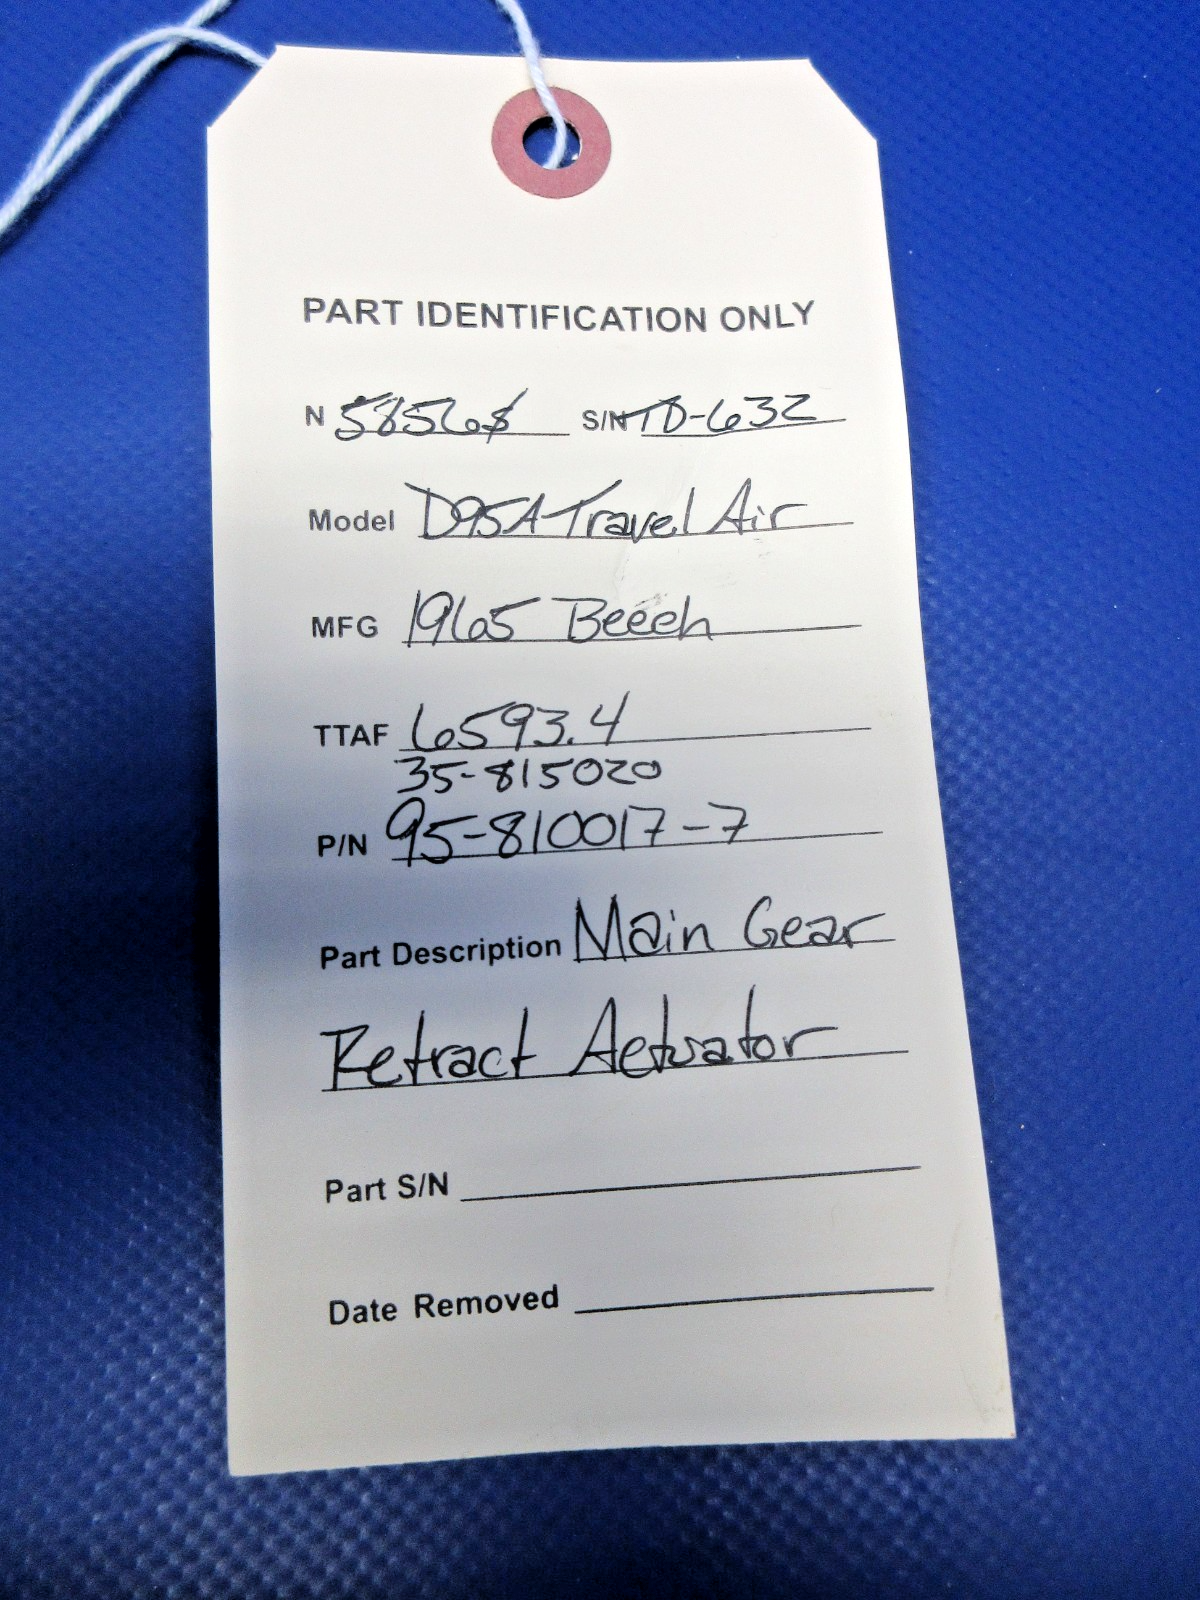 PART IDENTIFICATION ONLY
N 5856S S/N TD-632
Model D95A Travel Air
MFG 1965 Beech
TTAF 6593.4
35-815020
P/N 95-810017-7
Part Description Main Gear
Retract Actuator
Part S/N
Date Removed